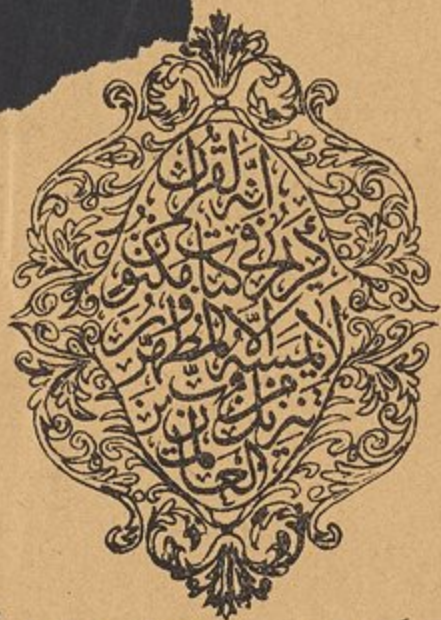 انه لقرآن
كريم في كتاب مكنون
لا يمسه الا المطهرون
تنزيل من رب
العالمين